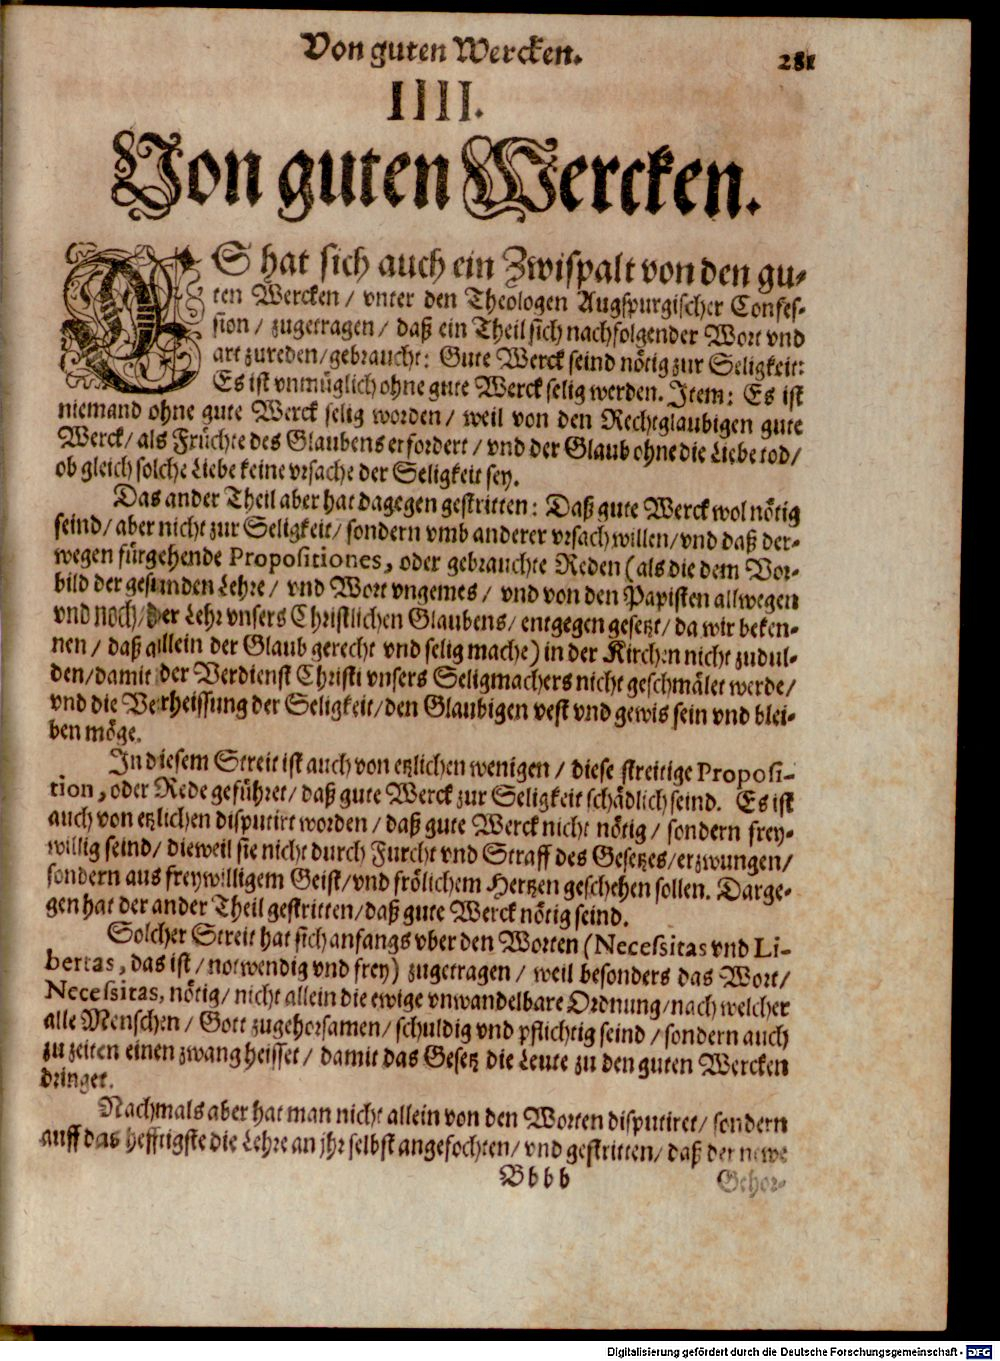 Von guten Wercken. 281
IIII.
Von guten Wercken.
ES hat sich auch ein Zwispalt von den gu-
ten Wercken / vnter den Theologen Augspurgischer Confes-
sion / zugetragen / daß ein Theil sich nachfolgender Wort vnd
art zureden / gebraucht: Gute Werck seind nötig zur Seligkeit:
Es ist vnmüglich ohne gute Werck selig werden. Item: Es ist
niemand ohne gute Werck selig worden / weil von den Rechtglaubigen gute
Werck / als Früchte des Glaubens erfordert / vnd der Glaub ohne die Liebe tod /
ob gleich solche Liebe keine vrsache der Seligkeit sey.
Das ander Theil aber hat dagegen gestritten: Daß gute Werck wol nötig
seind / aber nicht zur Seligkeit / sondern vmb anderer vrsach willen / vnd daß der-
wegen fürgehende Propositiones, oder gebrauchte Reden (als die dem Vor-
bild der gesunden Lehre / vnd Wort vngemes / vnd von den Papisten allwegen
vnd noch / der Lehr vnsers Christlichen Glaubens / entgegen gesetzt / da wir beken-
nen / daß allein der Glaub gerecht vnd selig mache) in der Kirchen nicht zudul-
den / damit der Verdienst Christi vnsers Seligmachers nicht geschmälet werde /
vnd die Verheissung der Seligkeit / den Glaubigen vest vnd gewis sein vnd blei-
ben möge.
In diesem Streit ist auch von etzlichen wenigen / diese streitige Proposi-
tion, oder Rede geführet / daß gute Werck zur Seligkeit schädlich seind. Es ist
auch von etzlichen disputirt worden / daß gute Werck nicht nötig / sondern frey-
willig seind / dieweil sie nicht durch Furcht vnd Straff des Gesetzes / erzwungen /
sondern aus freywilligem Geist / vnd frölichem Hertzen geschehen sollen. Darge-
gen hat der ander Theil gestritten / daß gute Werck nötig seind.
Solcher Streit hat sich anfangs vber den Worten (Necessitas vnd Li-
bertas, das ist / notwendig vnd frey) zugetragen / weil besonders das Wort /
Necessitas, nötig / nicht allein die ewige vnwandelbare Ordnung / nach welcher
alle Menschen / Gott zugehorsamen / schuldig vnd pflichtig seind / sondern auch
zu zeiten einen zwang heisset / damit das Gesetz die Leute zu den guten Wercken
dringet.
Nachmals aber hat man nicht allein von den Worten disputiret / sondern
auff das hefftigste die Lehre an jhr selbst angefochten / vnd gestritten / daß der newe
Bbbb Gehor-
Digitalisierung gefördert durch die Deutsche Forschungsgemeinschaft - DFG